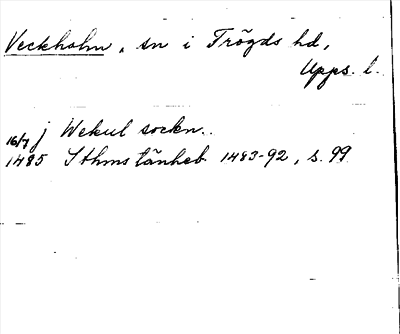 Veckholm, sn i Trögds hd,
Upps. l.
16/7 j Wekul sockn..
1485 Sthms tänkeb 1483-92, s. 99